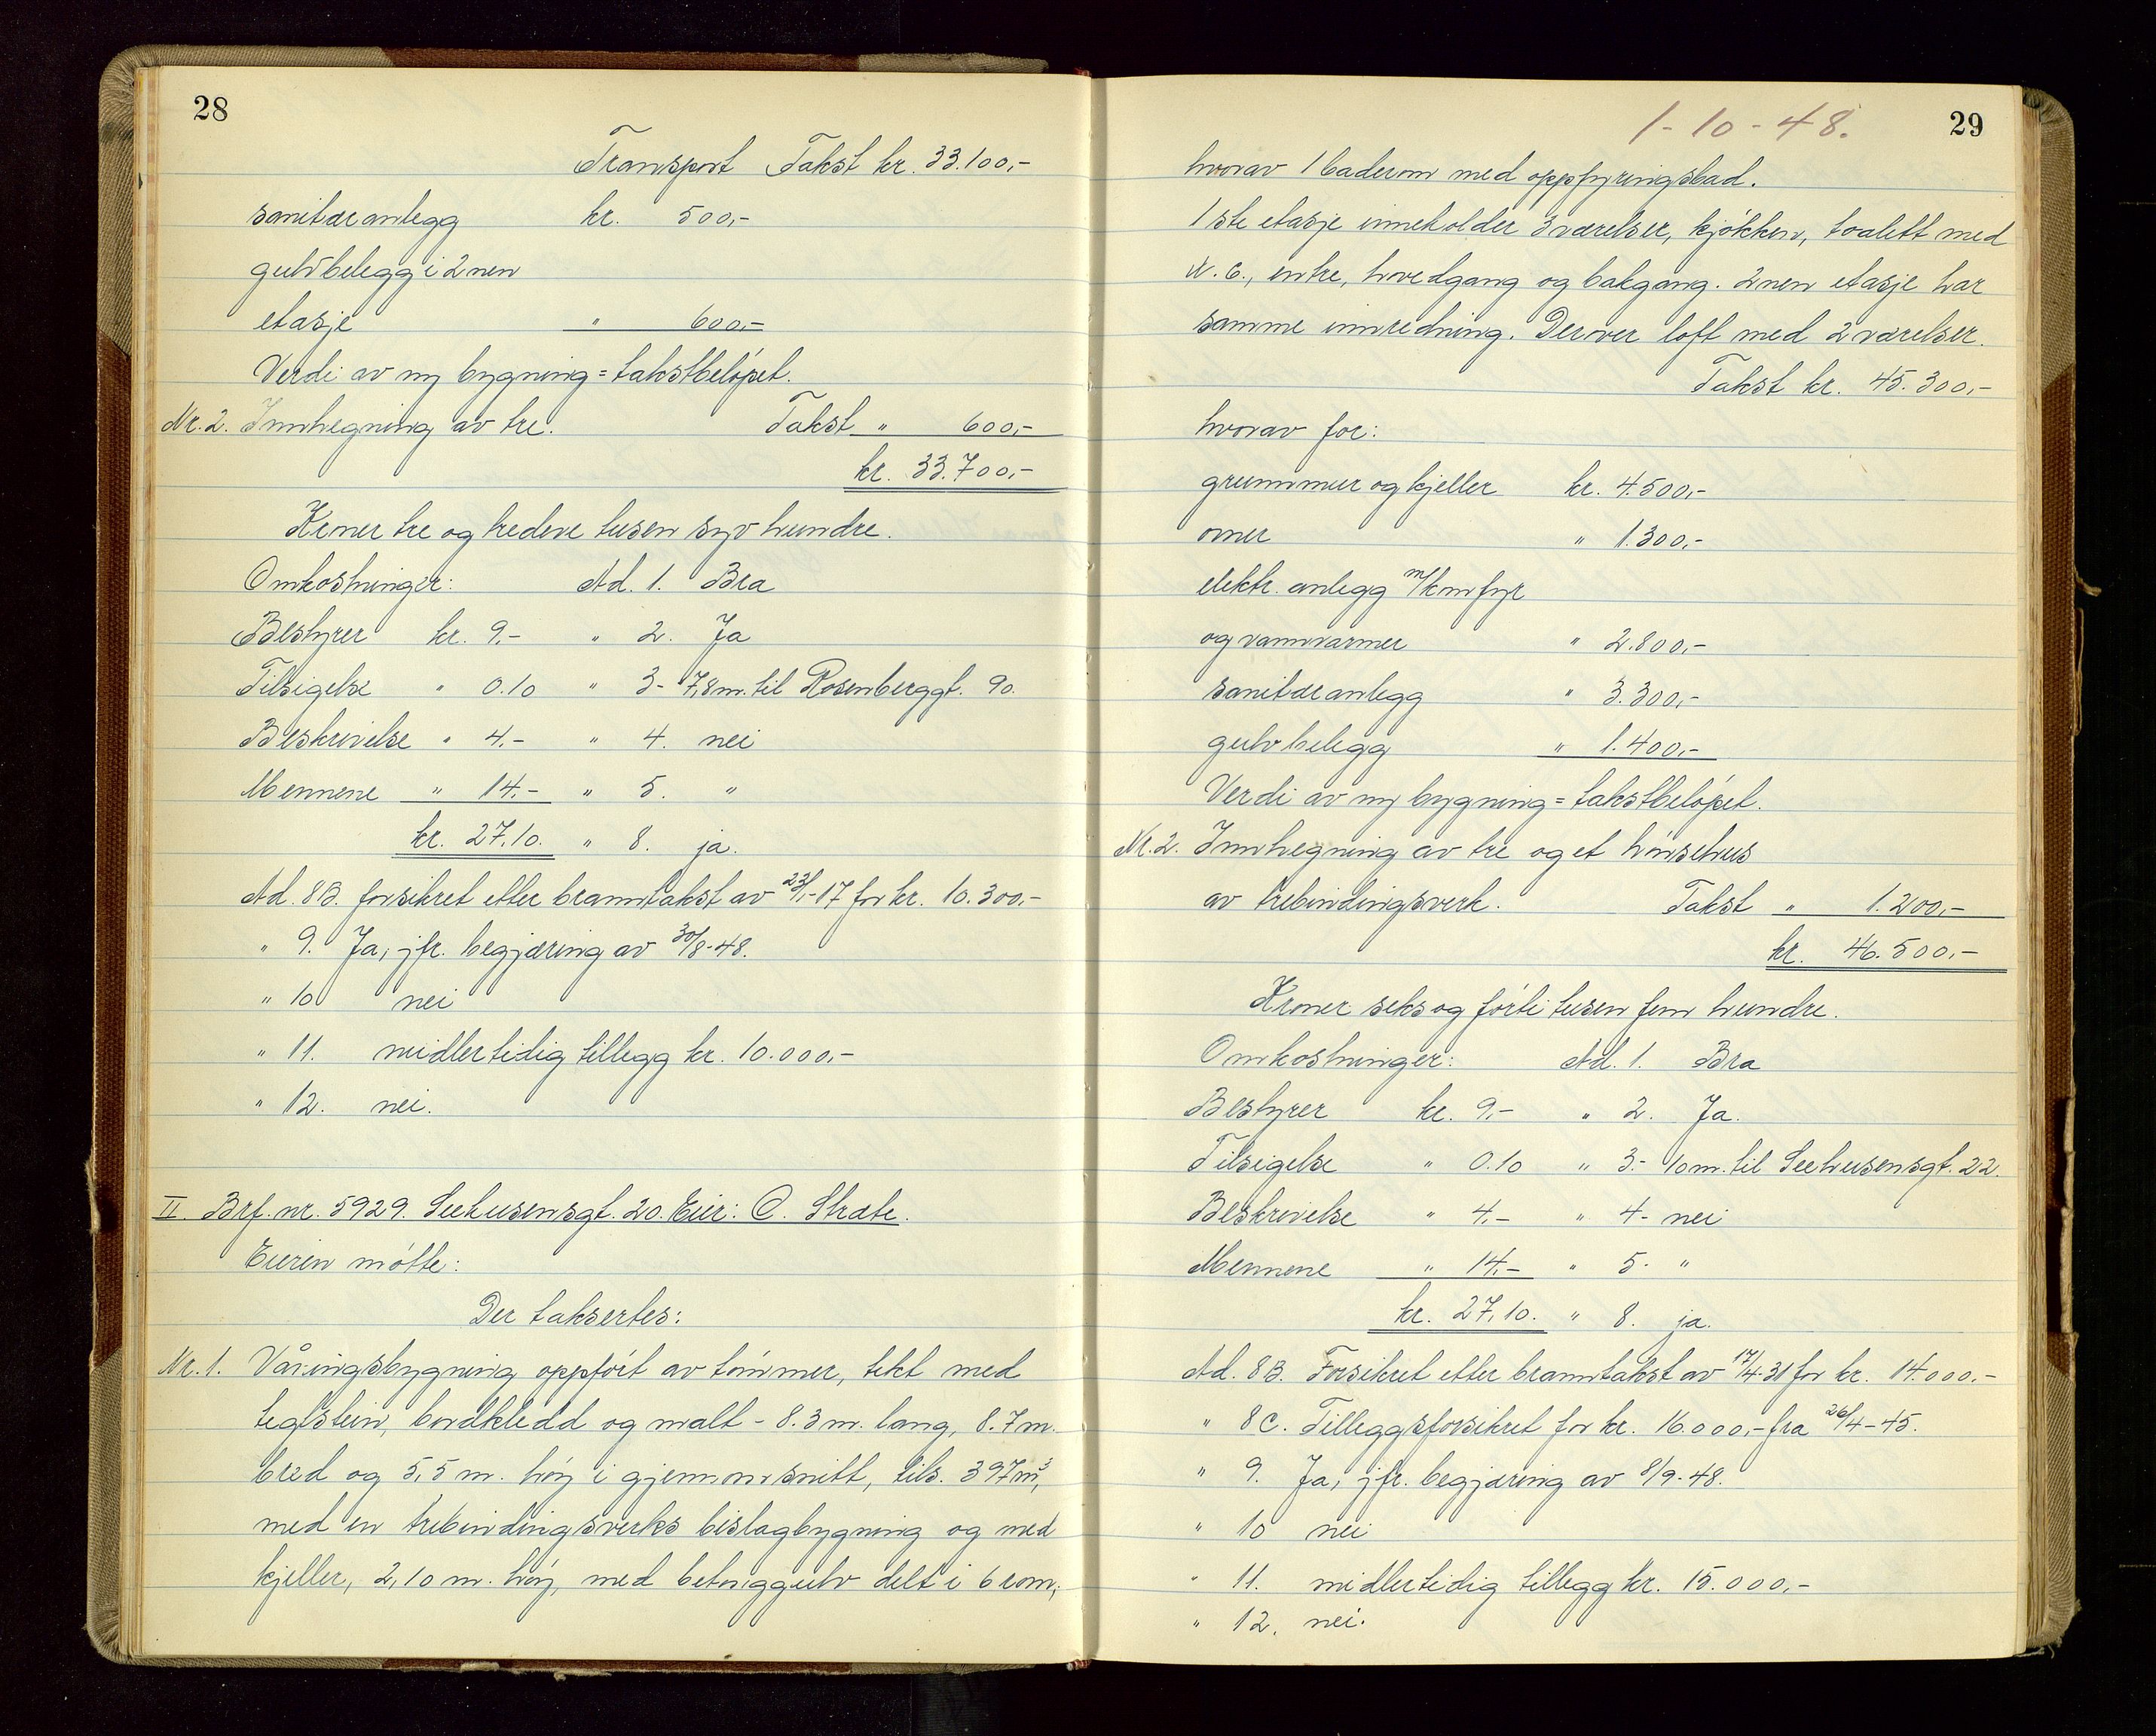 28
Transport Takst kr. 33.100,-
sanitæranlegg kr. 500,-
gulvbelegg i 2nen
etasje " 600,-
Verdi av ny bygning = takstbeløpet.
Nr. 2. Innhegning av tre. Takst " 600,-
kr. 33.700,-
Kroner tre og tredeve tusen syv hundre.
Omkostninger: Ad. 1. Bra
Bestyrer kr. 9.- " 2. Ja
Tilsigelse " 0.10 " 3- 7,8 m. til Rosenberggt. 90.
Beskrivelse " 4.- " 4. nei
Mennene " 14.- " 5. "
kr. 27.10. " 8. ja.
Ad. 8B. forsikret etter branntakst av 23/1-17 for kr. 10.300,-
" 9. Ja, jfr. begjæring av 30/8-48.
" 10 nei
" 11. midlertidig tillegg kr. 10.000,-
" 12. nei.
II. Brf. nr. 5929. Seehusensgt. 20. Eier: O. Stræte.
Eieren møtte:
Der taksertes:
Nr. 1. Våningsbygning oppført av tømmer, tekt med
teglstein, bordkledd og malt - 8.3 m. lang, 8.7 m.
bred og 5,5 m. høy i gjennomsnitt, tils. 397 m³,
med en trebindingsverks bislagbygning og med
kjeller, 2,10 m. høy, med betonggulv delt i 6 rom,
1-10-48.
29
hvorav 1 baderom med oppfyringsbad.
1ste etasje inneholder 3 værelser, kjøkken, toalett med
W.C., entre, hovedgang og bakgang. 2nen etasje har
samme innredning. Derover loft med 2 værelser.
Takst kr. 45.300,-
hvorav for:
grunnmur og kjeller kr. 4.500,-
omer " 1.300,-
elektr. anlegg m/komfyr
og vannvarmer " 2.800,-
sanitæranlegg " 3.300,-
gulvbelegg " 1.400,-
Verdi av ny bygning = takstbeløpet.
Nr. 2. Innhegning av tre og et hønsehus
av trebindingsverk. Takst " 1.200,-
kr. 46.500,-
Kroner seks og førti tusen fem hundre.
Omkostninger: Ad. 1. Bra
Bestyrer kr. 9,- " 2. Ja.
Tilsigelse " 0.10 " 3.- 10 m. til Seehusensgt. 22.
Beskrivelse " 4.- " 4- nei
Mennene " 14.- " 5. "
kr. 27,10. " 8. ja.
Ad. 8B. Forsikret etter branntakst av 17/4-31 for kr. 14.000.-
" 8C. Tilleggsforsikret for kr. 16.000,- fra 26/4-45.
" 9. Ja, jfr. begjæring av 8/9-48.
" 10 nei
" 11. midlertidig tillegg kr. 15.000,-
" 12. nei.